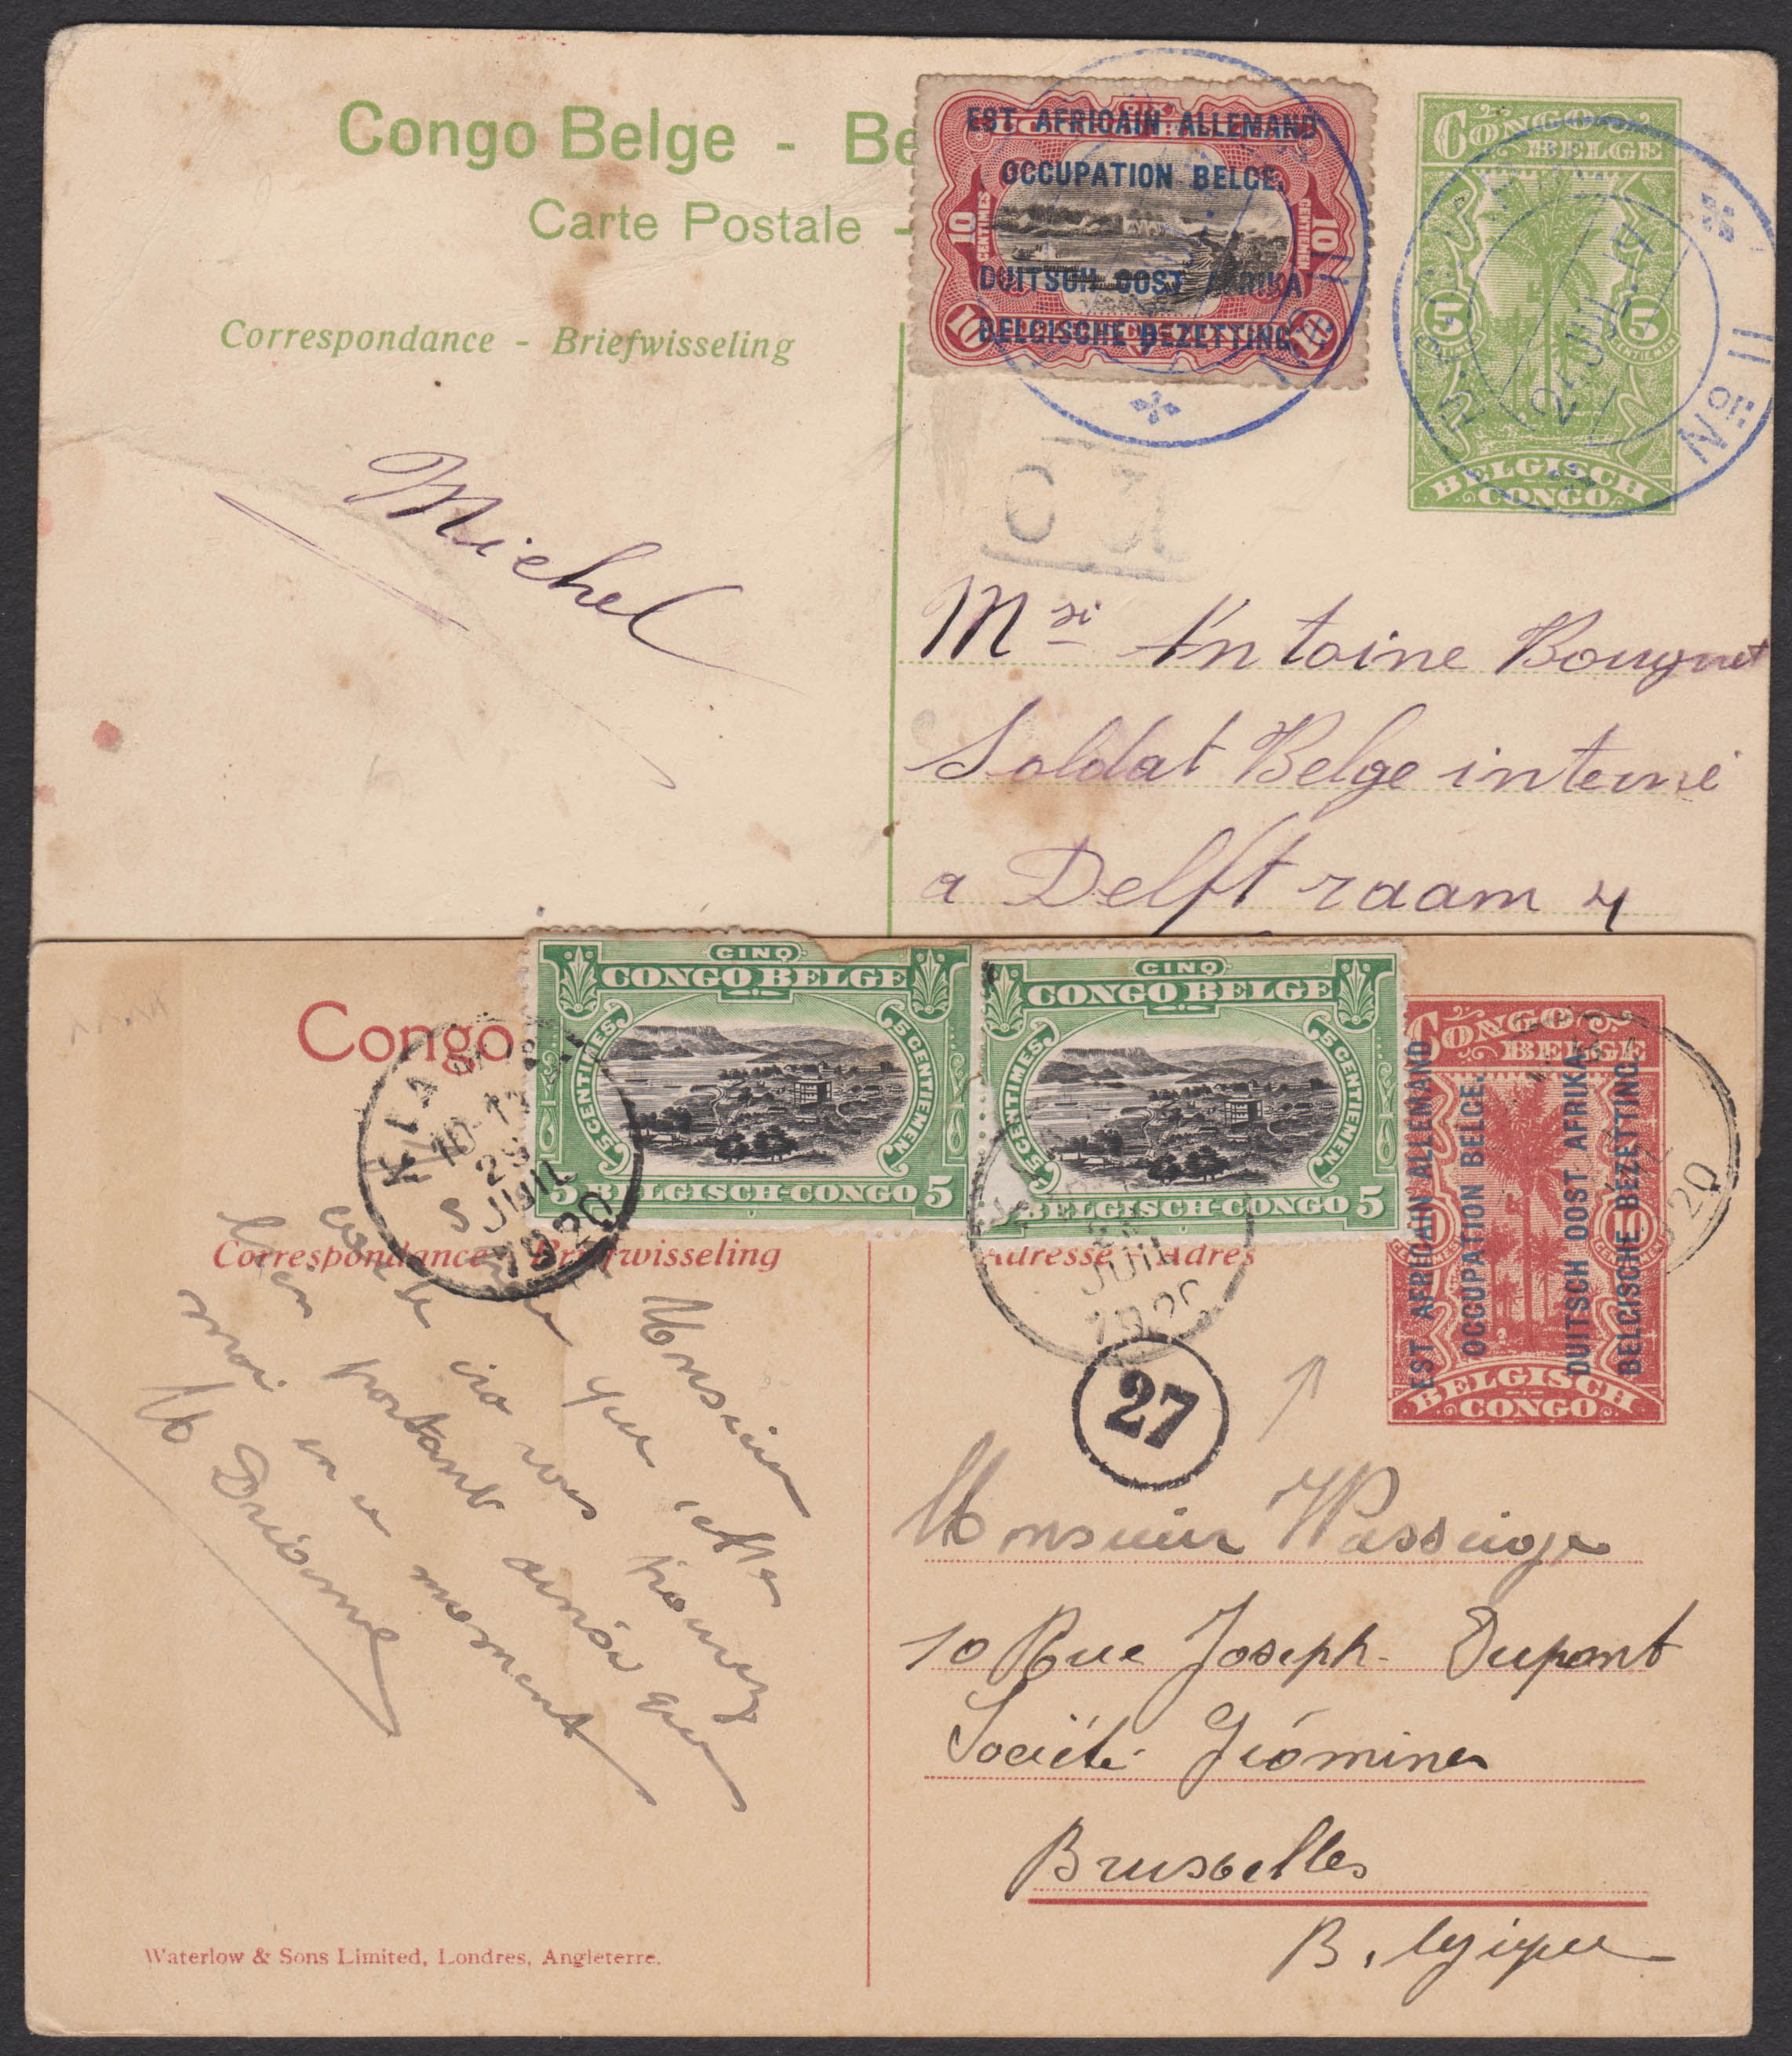 Congo Belge - Be
Carte Postale -
Correspondance - Briefwisseling
EST AFRICAIN ALLEMAND
OCCUPATION BELGE.
DUITSCH OOST AFRIKA
BELGISCHE BEZETTING.
10 CENTIMES
10 CENTIEMEN
10
10
CONGO
BELGE
5
5
BELGISCH
CONGO
24 JUIL. 17
No 11
C 31
Michel
Msi Antoine Bougnet
Soldat Belge interné
a Delft raam 4
Congo
CINQ
CONGO BELGE
5 CENTIMES
5 CENTIEMEN
5 BELGISCH-CONGO 5
CINQ
CONGO BELGE
5 CENTIMES
5 CENTIEMEN
BELGISCH-CONGO 5
CONGO
BELGE
10
10
BELGISCH
CONGO
EST AFRICAIN ALLEMAND
OCCUPATION BELGE.
DUITSCH OOST AFRIKA.
BELGISCHE BEZETTING.
10-11
29
JUIL
1920
JUIL
1920
1920
Correspondance - Briefwisseling
Adresse - Adres
27
Monsieur
que cette
carte ira vous trouver
bien portant ainsi que
moi en ce moment
M Driesme
Monsieur Wasseige
10 Rue Joseph Dupont
Société Géomines
Bruxelles
Belgique
Waterlow & Sons Limited, Londres, Angleterre.